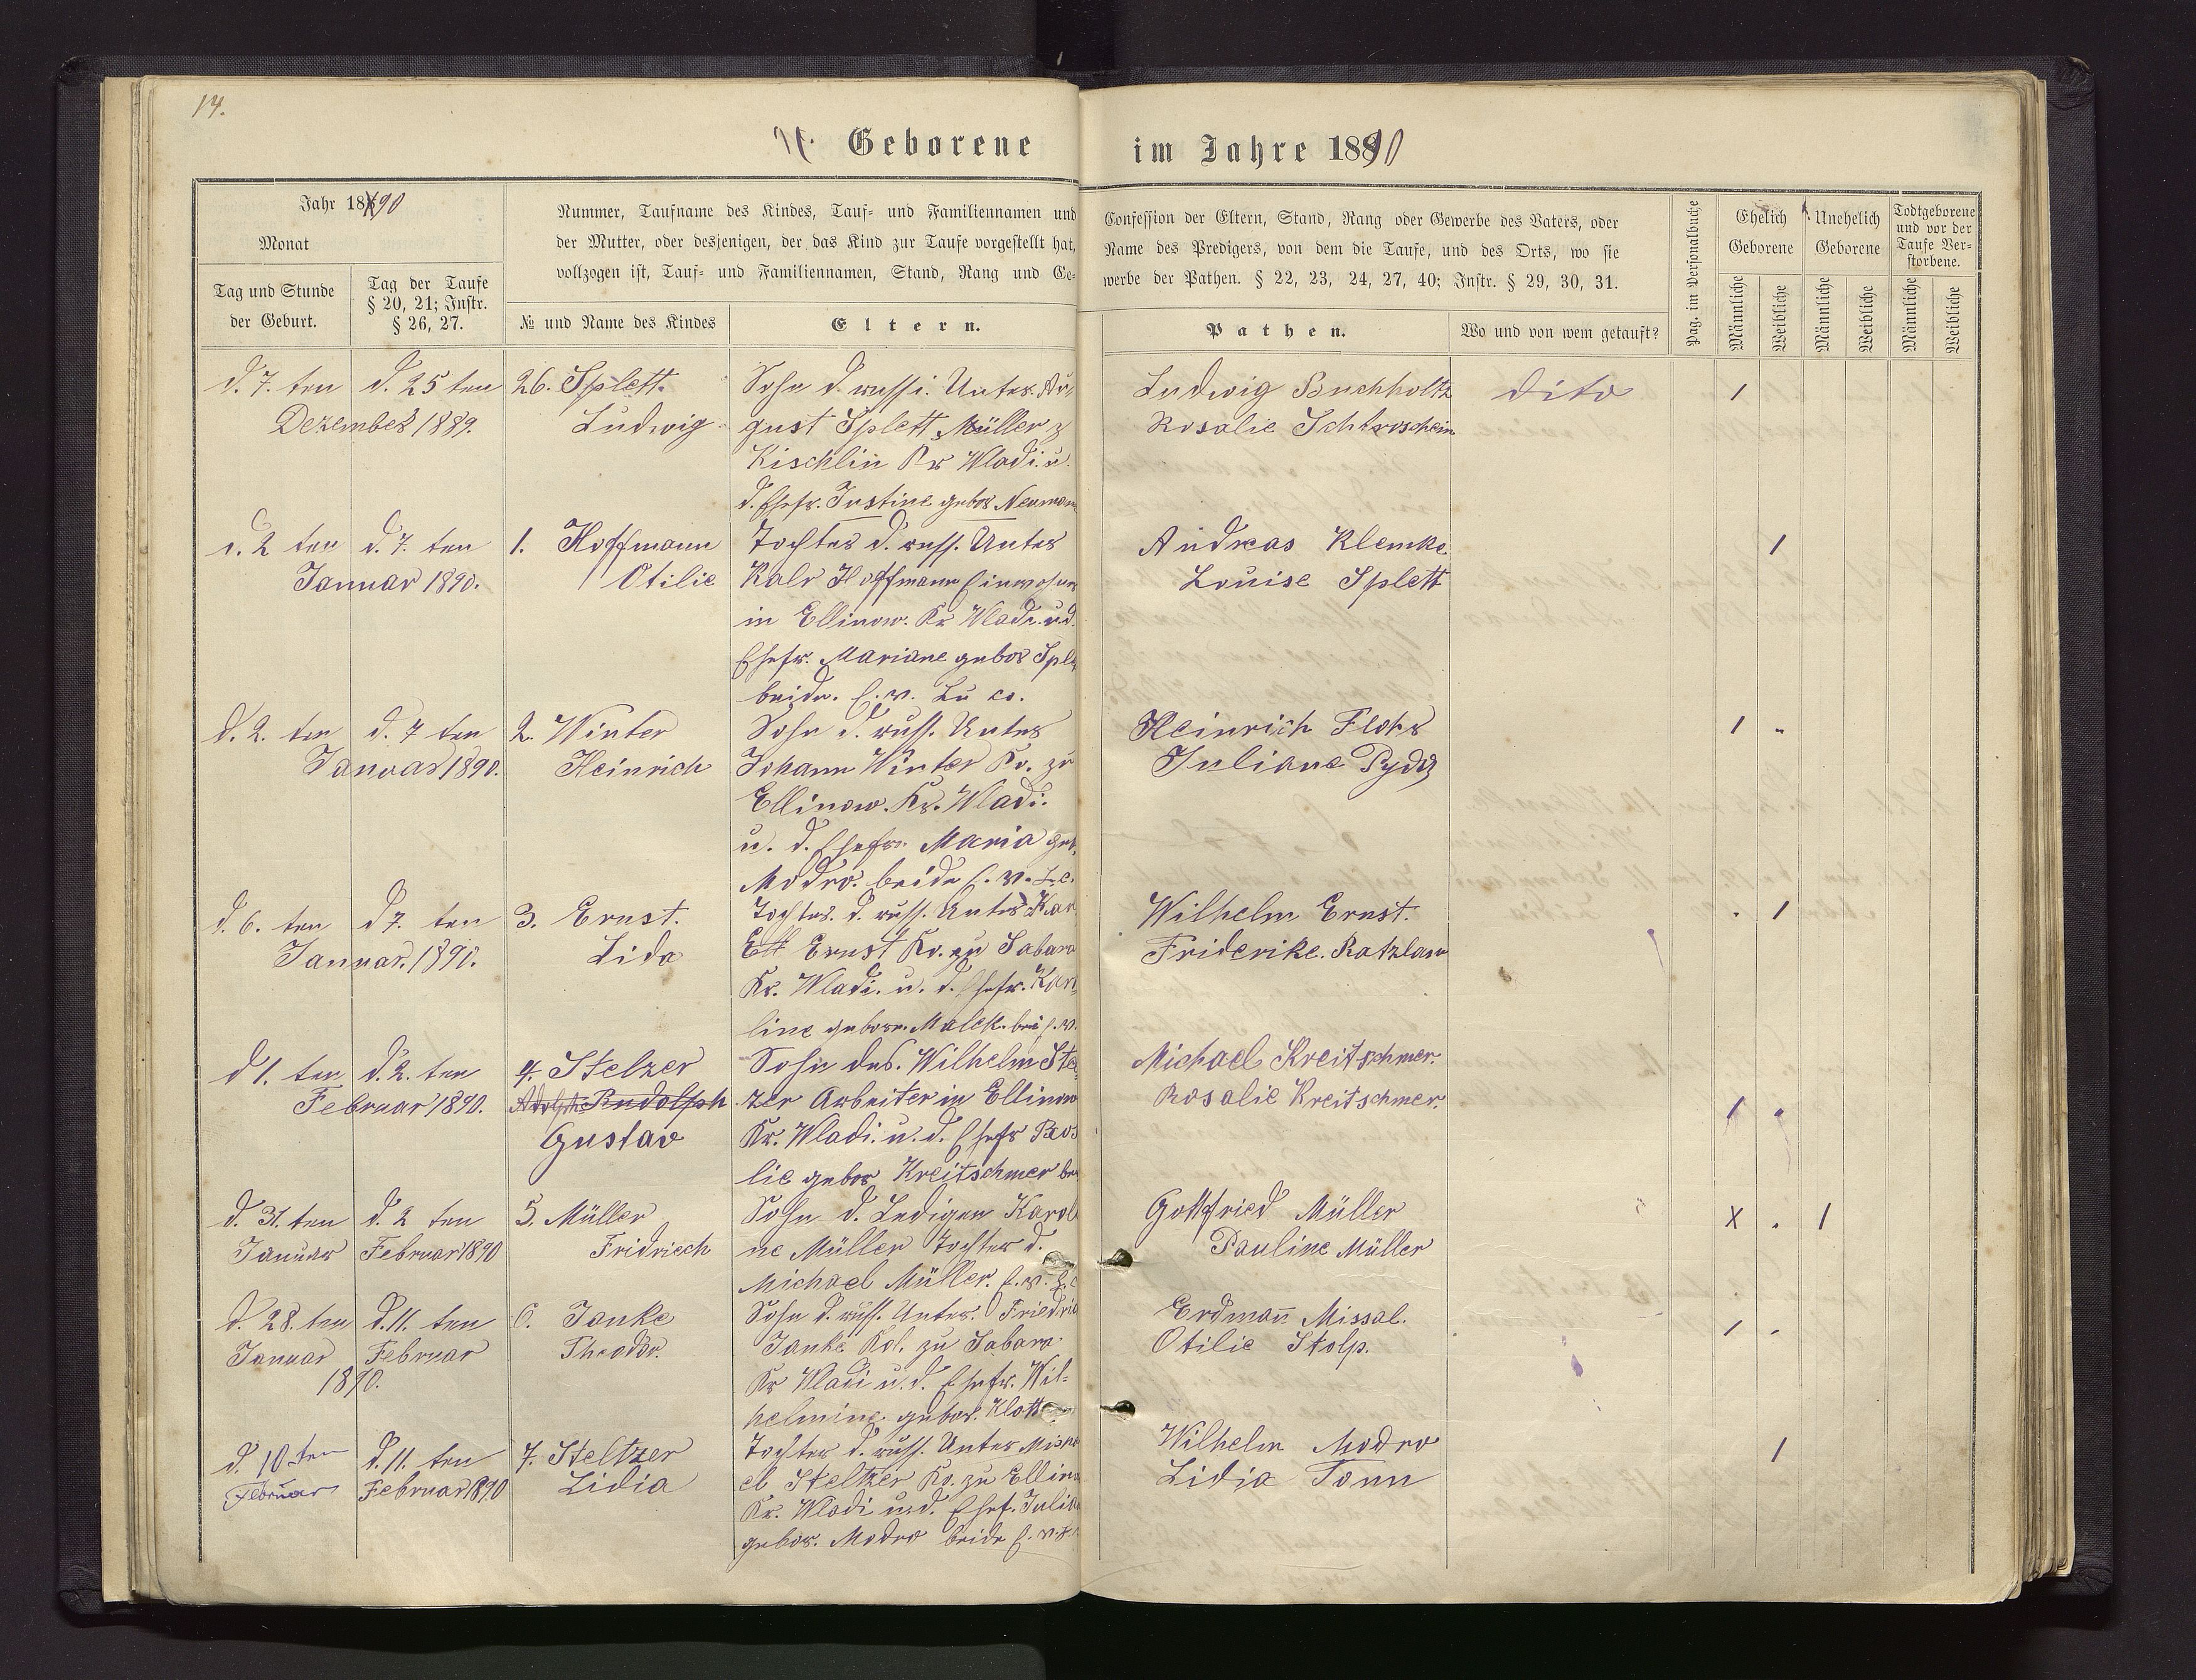 14.
Geborene im Jahre 1890
Jahr 1890
Monat
Tag und Stunde
der Geburt.
Tag der Taufe
§ 20, 21; Instr.
§ 26, 27.
Nummer, Taufname des Kindes, Tauf- und Familiennamen und
der Mutter, oder desjenigen, der das Kind zur Taufe vorgestellt hat,
vollzogen ist, Tauf- und Familiennamen, Stand, Rang und Ge-
№ und Name des Kindes
Eltern.
Confession der Eltern, Stand, Rang oder Gewerbe des Vaters, oder
Name des Predigers, von dem die Taufe, und des Orts, wo sie
werbe der Pathen. § 22, 23, 24, 27, 40; Instr. § 29, 30, 31.
Pathen.
Wo und von wem getauft?
Pag. im Personalbuche
Ehelich
Geborene
Unehelich
Geborene
Todtgeborene
und vor der
Taufe Ver-
storbene.
Männliche
Weibliche
Männliche
Weibliche
Männliche
Weibliche
d. 7. ten
Dezember 1889.
d. 25 ten
26. Splett.
Ludwig
Sohn d. russi. Unter. Au-
gust Splett Müller z
Kischlin Kr Wladi. u.
d. Ehefr. Justine gebor Neumann
Ludwig Buchholtz
Rosalie
dito
1
d. 2 ten
Januar 1890.
d. 7. ten
1. Hoffmann
Otilie
Tochter d. russ. Unter
Kalr Hoffmann Einwohner
in Ellinow. Kr Wladi. u d.
Ehefr. Mariane gebor
beide. E. w. Lu co.
Andreas Klemke
Louise Splett
1
d. 2. ten
Januar 1890.
d. 7 ten
2. Winter
Heinrich
Sohn d. russ. Unter
Johann Winter Ko. zu
Ellinow. Kr. Wladi.
u. d. Ehefr. Maria geb.
Modro. beide E. w. L. c.
Heinrich Flohr
Juliane
1 "
d. 6. ten
Januar. 1890.
d 7. ten
3. Ernst.
Lida
Tochter. d. russ. Unter Kar
Ernst Ko. zu Sabara
Kr. Wladi. u. d. Ehefr. Karo
line geborn. Malek. bei E. w.
Wilhelm Ernst.
Friderike. Ratzlaw
. 1
d 1. ten
Februar 1890.
d. 2. ten
4. Stelzer
Adolph Rudolph
Gustav
Sohn des. Wilhelm Stel
zer Arbeiter in Ellinow
Kr. Wladi. u. d. Ehefr Rosa
lie gebor Kreitschmer
Michael Kreitschmer.
Rosalie Kreitschmer.
1 "
d. 31. ten
Januar
d. 2 ten
Februar 1890
5. Müller
Fridriech
Sohn d. Ledigen Karoli
ne Müller Tochter d.
Michael Müller. E. w. L. c
Gottfried Müller
Pauline Müller
X . 1
d. 28. ten
Januar
1890.
d. 11. ten
Februar
6. Janke
Theodor.
Sohn d. russ. Unter. Friedri
Janke Kol. zu Sabara.
Kr Wladi u. d. Ehefr. Wil-
helmine gebor. Klatt
Erdmañ Missal.
Otilie Stolp.
1 "
d. 10 ten
Februar
d. 11. ten
Februar 1890
7. Steltzer
Lidia
Tochter d. russ. Unter Micha
el Steltzer Ko. zu Ellino
Kr. Wladi u. d. Ehef. Julia
gebor. Modro beide E. w.
Wilhelm Modro
Lidia Tonn
1